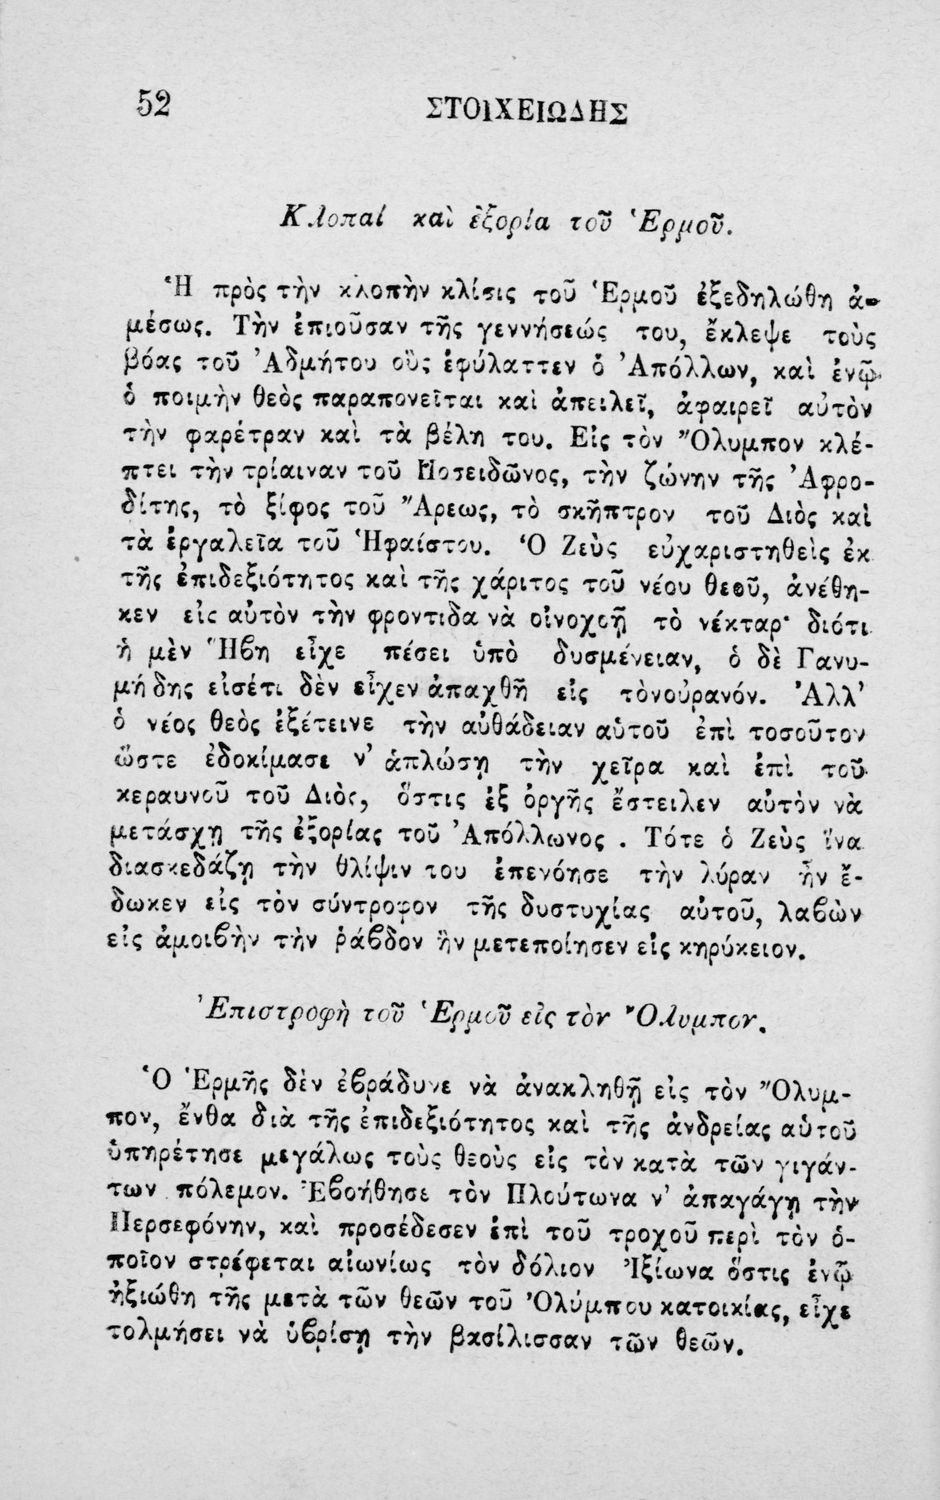 52 ΣΤΟΙΧΕΙΩΔΗΣ
Κλοπαί καὶ ἐξορία τοῦ Ἑρμοῦ.
Ἡ πρὸς τὴν κλοπὴν κλίσις τοῦ Ἑρμοῦ ἐξεδηλώθη ἀ-
μέσως. Τὴν ἐπιοῦσαν τῆς γεννήσεώς του, ἔκλεψε τοὺς
βόας τοῦ Ἀδμήτου οὓς ἐφύλαττεν ὁ Ἀπόλλων, καὶ ἐνῷ
ὁ ποιμὴν θεὸς παραπονεῖται καὶ ἀπειλεῖ, ἀφαιρεῖ αὐτὸν
τὴν φαρέτραν καὶ τὰ βέλη του. Εἰς τὸν Ὄλυμπον κλέ-
πτει τὴν τρίαιναν τοῦ Ποσειδῶνος, τὴν ζώνην τῆς Ἀφρο-
δίτης, τὸ ξίφος τοῦ Ἄρεως, τὸ σκῆπτρον τοῦ Διὸς καὶ
τὰ ἐργαλεῖα τοῦ Ἡφαίστου. Ὁ Ζεὺς εὐχαριστηθεὶς ἐκ
τῆς ἐπιδεξιότητος καὶ τῆς χάριτος τοῦ νέου θεοῦ, ἀνέθη-
κεν εἰς αὐτὸν τὴν φροντιδα νὰ οἰνοχοῇ τὸ νέκταρ· διότι
ἡ μὲν Ἥβη εἶχε πέσει ὑπὸ δυσμένειαν, ὁ δὲ Γανυ-
μήδης εἰσέτι δὲν εἶχεν ἀπαχθῆ εἰς τὸνοὐρανόν. Ἀλλ'
ὁ νέος θεὸς ἐξέτεινε τὴν αὐθάδειαν αὑτοῦ ἐπὶ τοσοῦτον
ὥστε ἐδοκίμασε ν' ἁπλώσῃ τὴν χεῖρα καὶ ἐπὶ τοῦ
κεραυνοῦ τοῦ Διὸς, ὅστις ἐξ ὀργῆς ἔστειλεν αὐτὸν νὰ
μετάσχῃ τῆς ἐξορίας τοῦ Ἀπόλλωνος . Τότε ὁ Ζεὺς ἵνα
διασκεδάζῃ τὴν θλίψιν του ἐπενόησε τὴν λύραν ἣν ἔ-
δωκεν εἰς τὸν σύντροφον τῆς δυστυχίας αὑτοῦ, λαβὼν
εἰς ἀμοιβὴν τὴν ῥάβδον ἣν μετεποίησεν εἰς κηρύκειον.
Ἐπιστροφὴ τοῦ Ἑρμοῦ εἰς τὸν Ὄλυμπον.
Ὁ Ἑρμῆς δὲν ἐβράδυνε νὰ ἀνακληθῇ εἰς τὸν Ὄλυμ-
πον, ἔνθα διὰ τῆς ἐπιδεξιότητος καὶ τῆς ἀνδρείας αὑτοῦ
ὑπηρέτησε μεγάλως τοὺς θεοὺς εἰς τὸν κατὰ τῶν γιγάν-
των πόλεμον. Ἐβοήθησε τὸν Πλούτωνα ν' ἀπαγάγῃ τὴν
Περσεφόνην, καὶ προσέδεσεν ἐπὶ τοῦ τροχοῦ περὶ τὸν ὁ-
ποῖον στρέφεται αἰωνίως τὸν δόλιον Ἰξίωνα ὅστις ἐνῷ
ἠξιώθη τῆς μετὰ τῶν θεῶν τοῦ Ὀλύμπου κατοικίας, εἶχε
τολμήσει νὰ ὑβρίσῃ τὴν βασίλισσαν τῶν θεῶν.